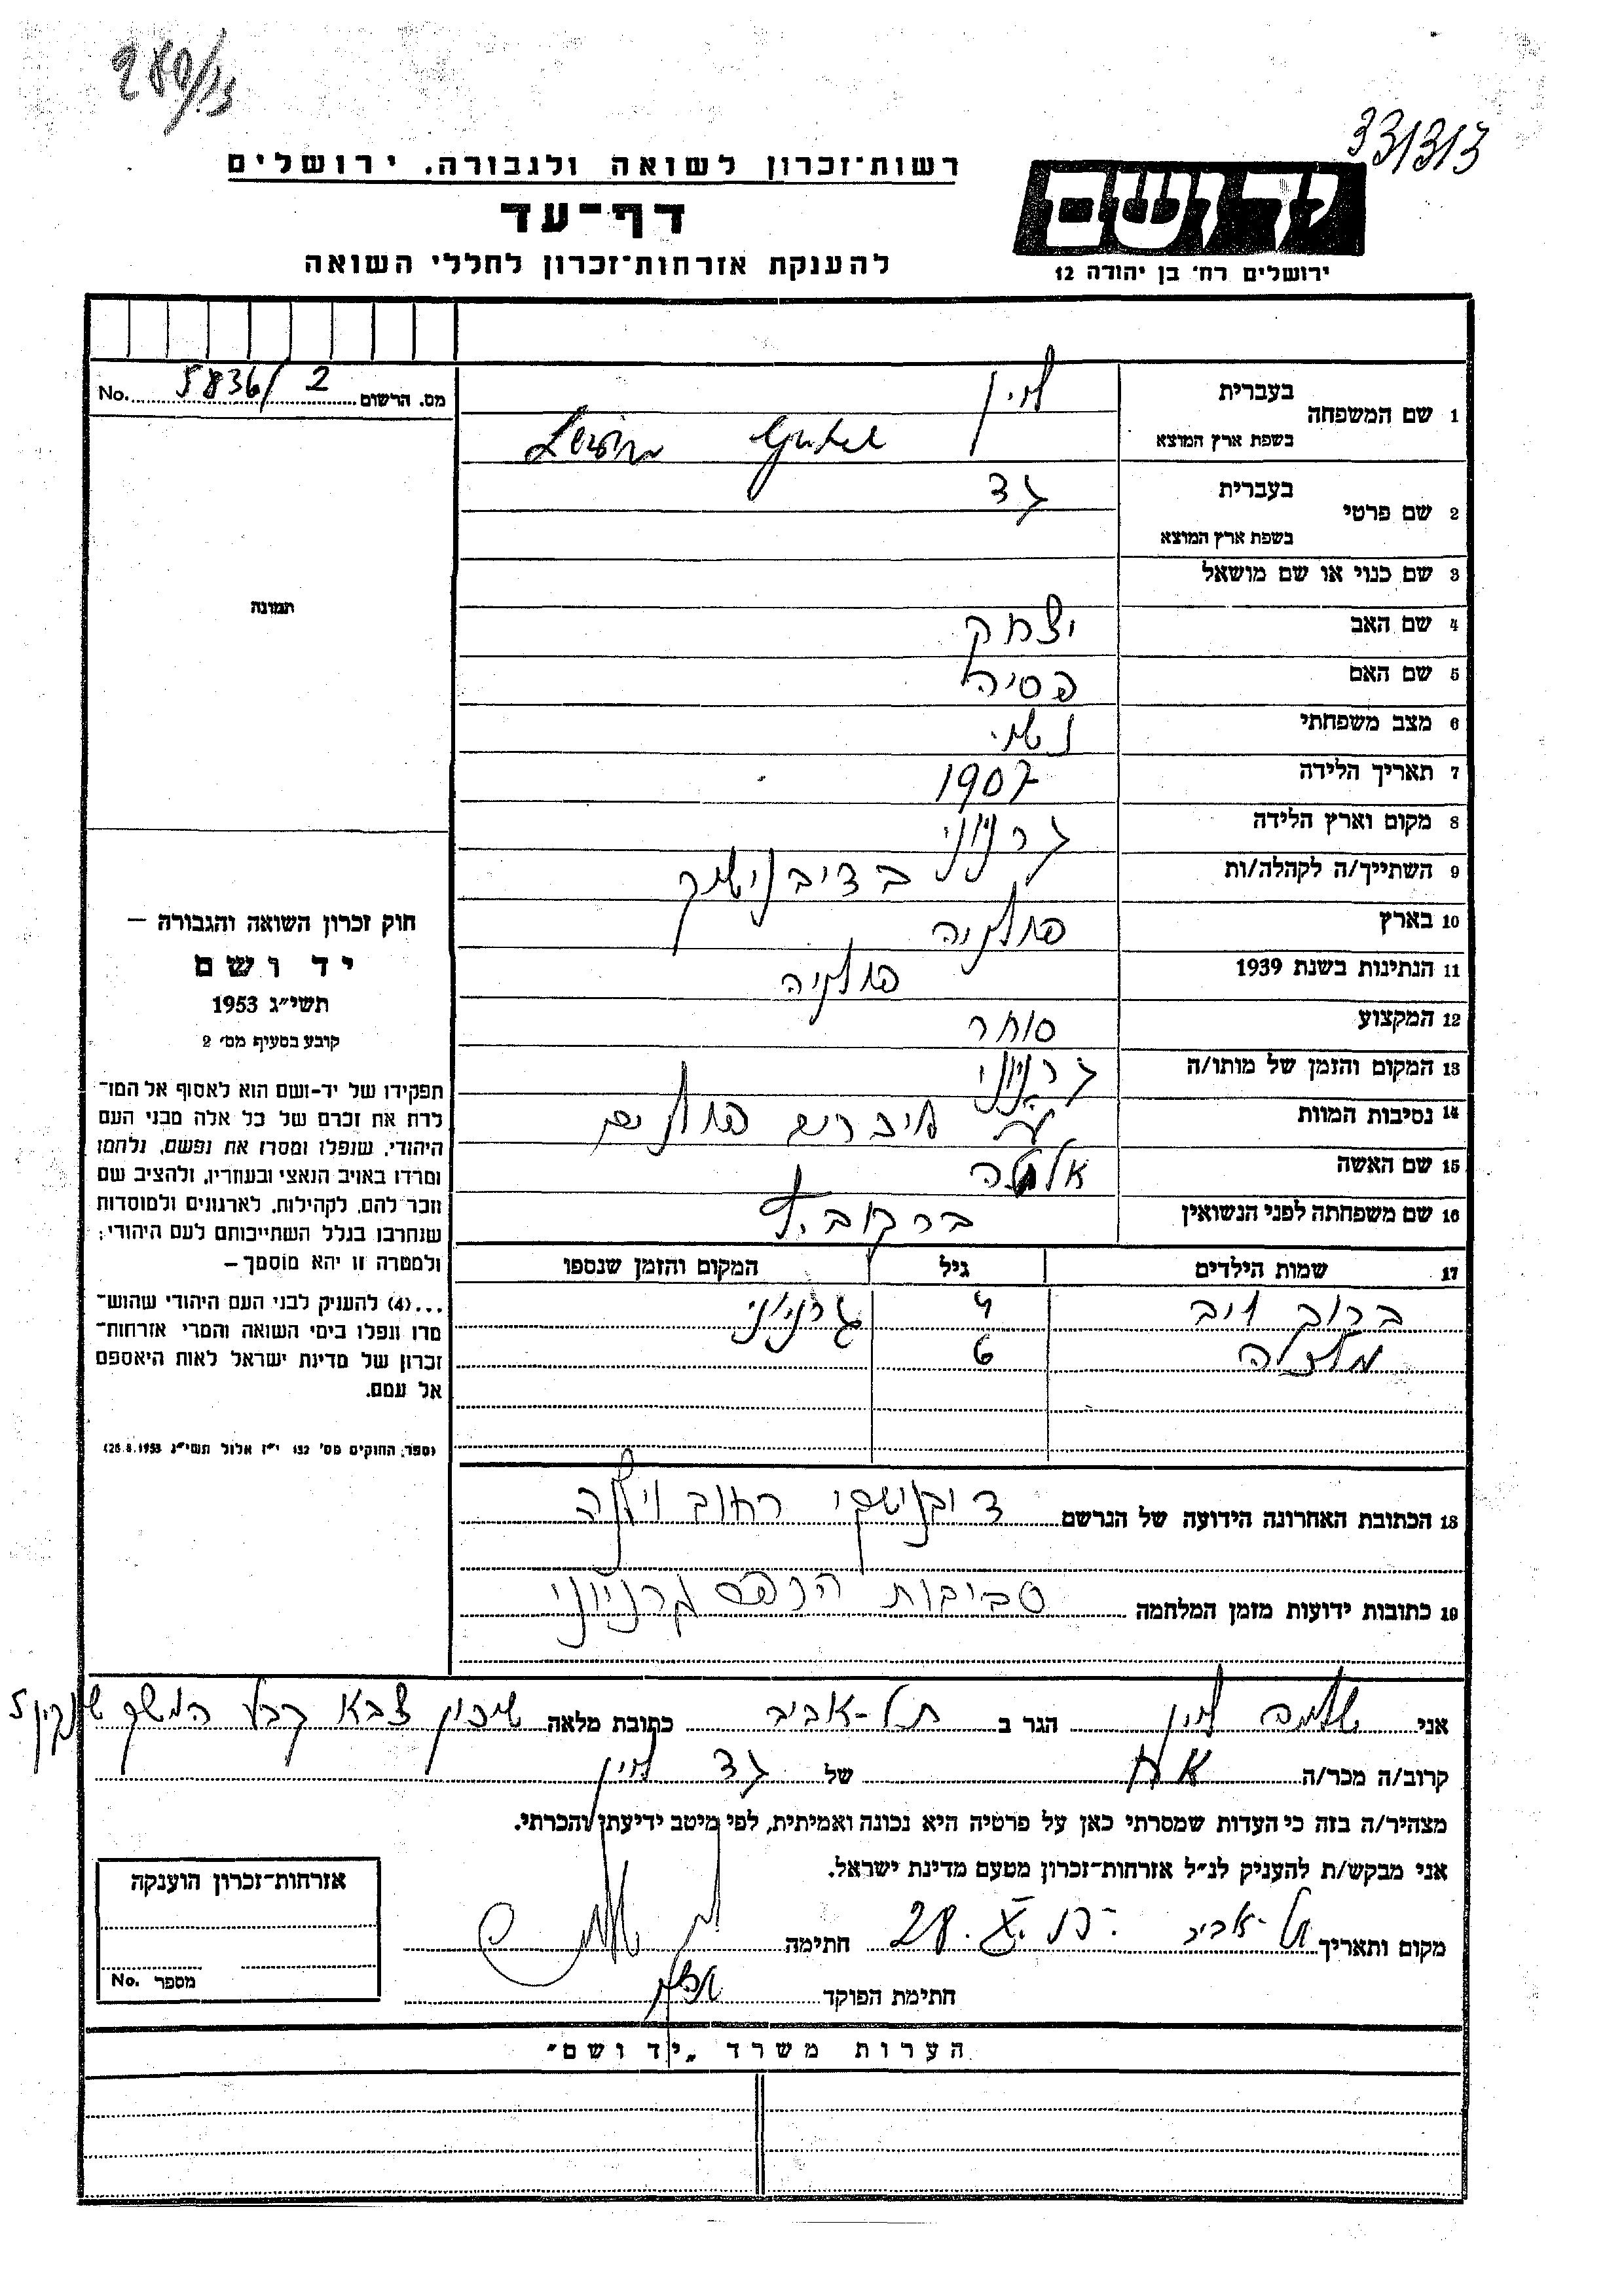 280/13
331313
רשות־זכרון לשואה ולגבורה, ירושלים
ידושם
דף־עד
להענקת אזרחות־זכרון לחללי השואה
ירושלים רח׳ בן יהודה 12
מס. הרשום 5836/2 No.
1 שם המשפחה בעברית לוין
בשפת ארץ המוצא Lewin
2 שם פרטי בעברית גד
בשפת ארץ המוצא
3 שם כנוי או שם מושאל
4 שם האב יצחק
5 שם האם פסיה
6 מצב משפחתי נשוי
7 תאריך הלידה 1907
8 מקום וארץ הלידה גרניוני
9 השתייך/ה לקהלה/ות
10 בארץ פולניה
11 הנתינות בשנת 1939 פולניה
12 המקצוע סוחר
13 המקום והזמן של מותו/ה גרניוני
14 נסיבות המוות
15 שם האשה
16 שם משפחתה לפני הנשואין
17 שמות הילדים גיל המקום והזמן שנספו
4 גרניוני
6
18 הכתובת האחרונה הידועה של הנרשם רחוב וילנה
19 כתובות ידועות מזמן המלחמה סביבות גרניוני
תמונה
חוק זכרון השואה והגבורה —
יד ושם
תשי״ג 1953
קובע בסעיף מס׳ 2
תפקידו של יד־ושם הוא לאסוף אל המו־
לדת את זכרם של כל אלה מבני העם
היהודי, שנפלו ומסרו את נפשם, נלחמו
ומרדו באויב הנאצי ובעוזריו, ולהציב שם
וזכר להם, לקהילות, לארגונים ולמוסדות
שנחרבו בגלל השתייכותם לעם היהודי;
ולמטרה זו יהא מוסמך —
...(4) להעניק לבני העם היהודי שהוש־
מדו ונפלו בימי השואה והמרי אזרחות־
זכרון של מדינת ישראל לאות היאספם
אל עמם.
(ספר החוקים מס׳ 132 י״ז אלול תשי״ג 28.8.1953)
אני שלמה לוין הגר ב תל-אביב כתובת מלאה שיכון צבא קבע
קרוב/ה מכר/ה אח של גד לוין
מצהיר/ה בזה כי העדות שמסרתי כאן על פרטיה היא נכונה ואמיתית, לפי מיטב ידיעתי והכרתי.
אני מבקש/ת להעניק לנ״ל אזרחות־זכרון מטעם מדינת ישראל.
מקום ותאריך תל-אביב חתימה
חתימת הפוקד
אזרחות־זכרון הוענקה
מספר No.
הערות משרד „יד ושם״